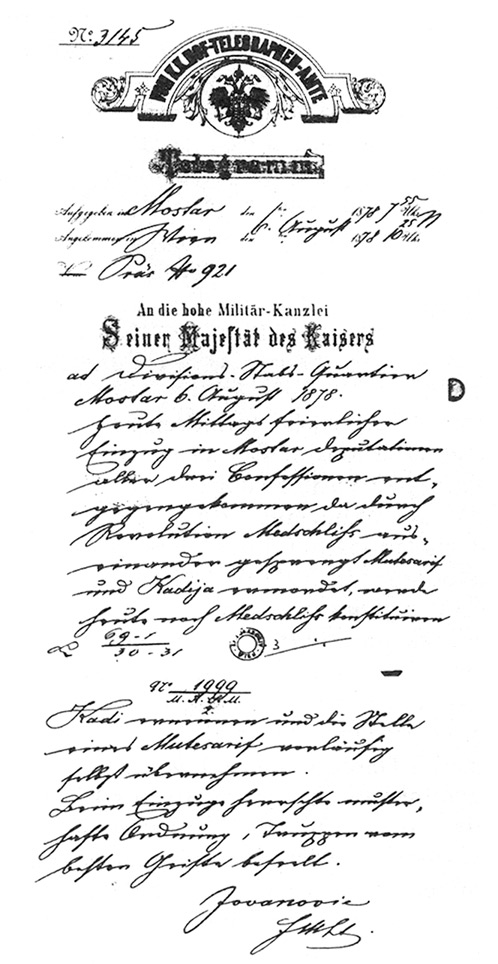 No. 3145
VOM K.K. HOF-TELEGRAPHEN-AMTE
Telegramm.
Aufgegeben in Mostar den 6. August 1878 7 55 Uhr
Angekommen in Wien den 6. August 1878 10 25 Uhr
Präs No 921
An die hohe Militär-Kanzlei
Seiner Majestät des Kaisers
ad Divisions-Stabs-Quartier
Mostar 6. August 1878.
D
Heute Mittags feierlicher
Einzug in Mostar deputationen
aller drei Confessionen ent-
gegengekommen da durch
Revolution Medschliss aus-
einander gesprengt Mutesarif
und Kadija ermordet, werde
heute noch Medschliss konstituiren
69-1
30-31
3
1999
M. K. S. M.
Kadi ernennen und die Stelle
eines Mutesarif vorläufig
selbst übernehmen.
Beim Einzuge herrschte muster-
hafte Ordnung, Truppen vom
besten Geiste beseelt.
Jovanovic